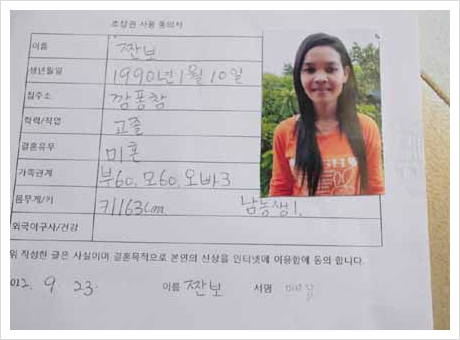 초상권 사용 동의서
이름 짠보
생년월일 1990년 1월 10일
집주소 깜퐁참
학력/직업 고졸
결혼유무 미혼
가족관계 부60, 모60, 오빠3
몸무게/키 키163cm
외국어구사/건강
위 작성한 글은 사실이며 결혼목적으로 본인의 신상을 인터넷에 이용함에 동의 합니다.
012. 9. 23. 이름 짠보 서명